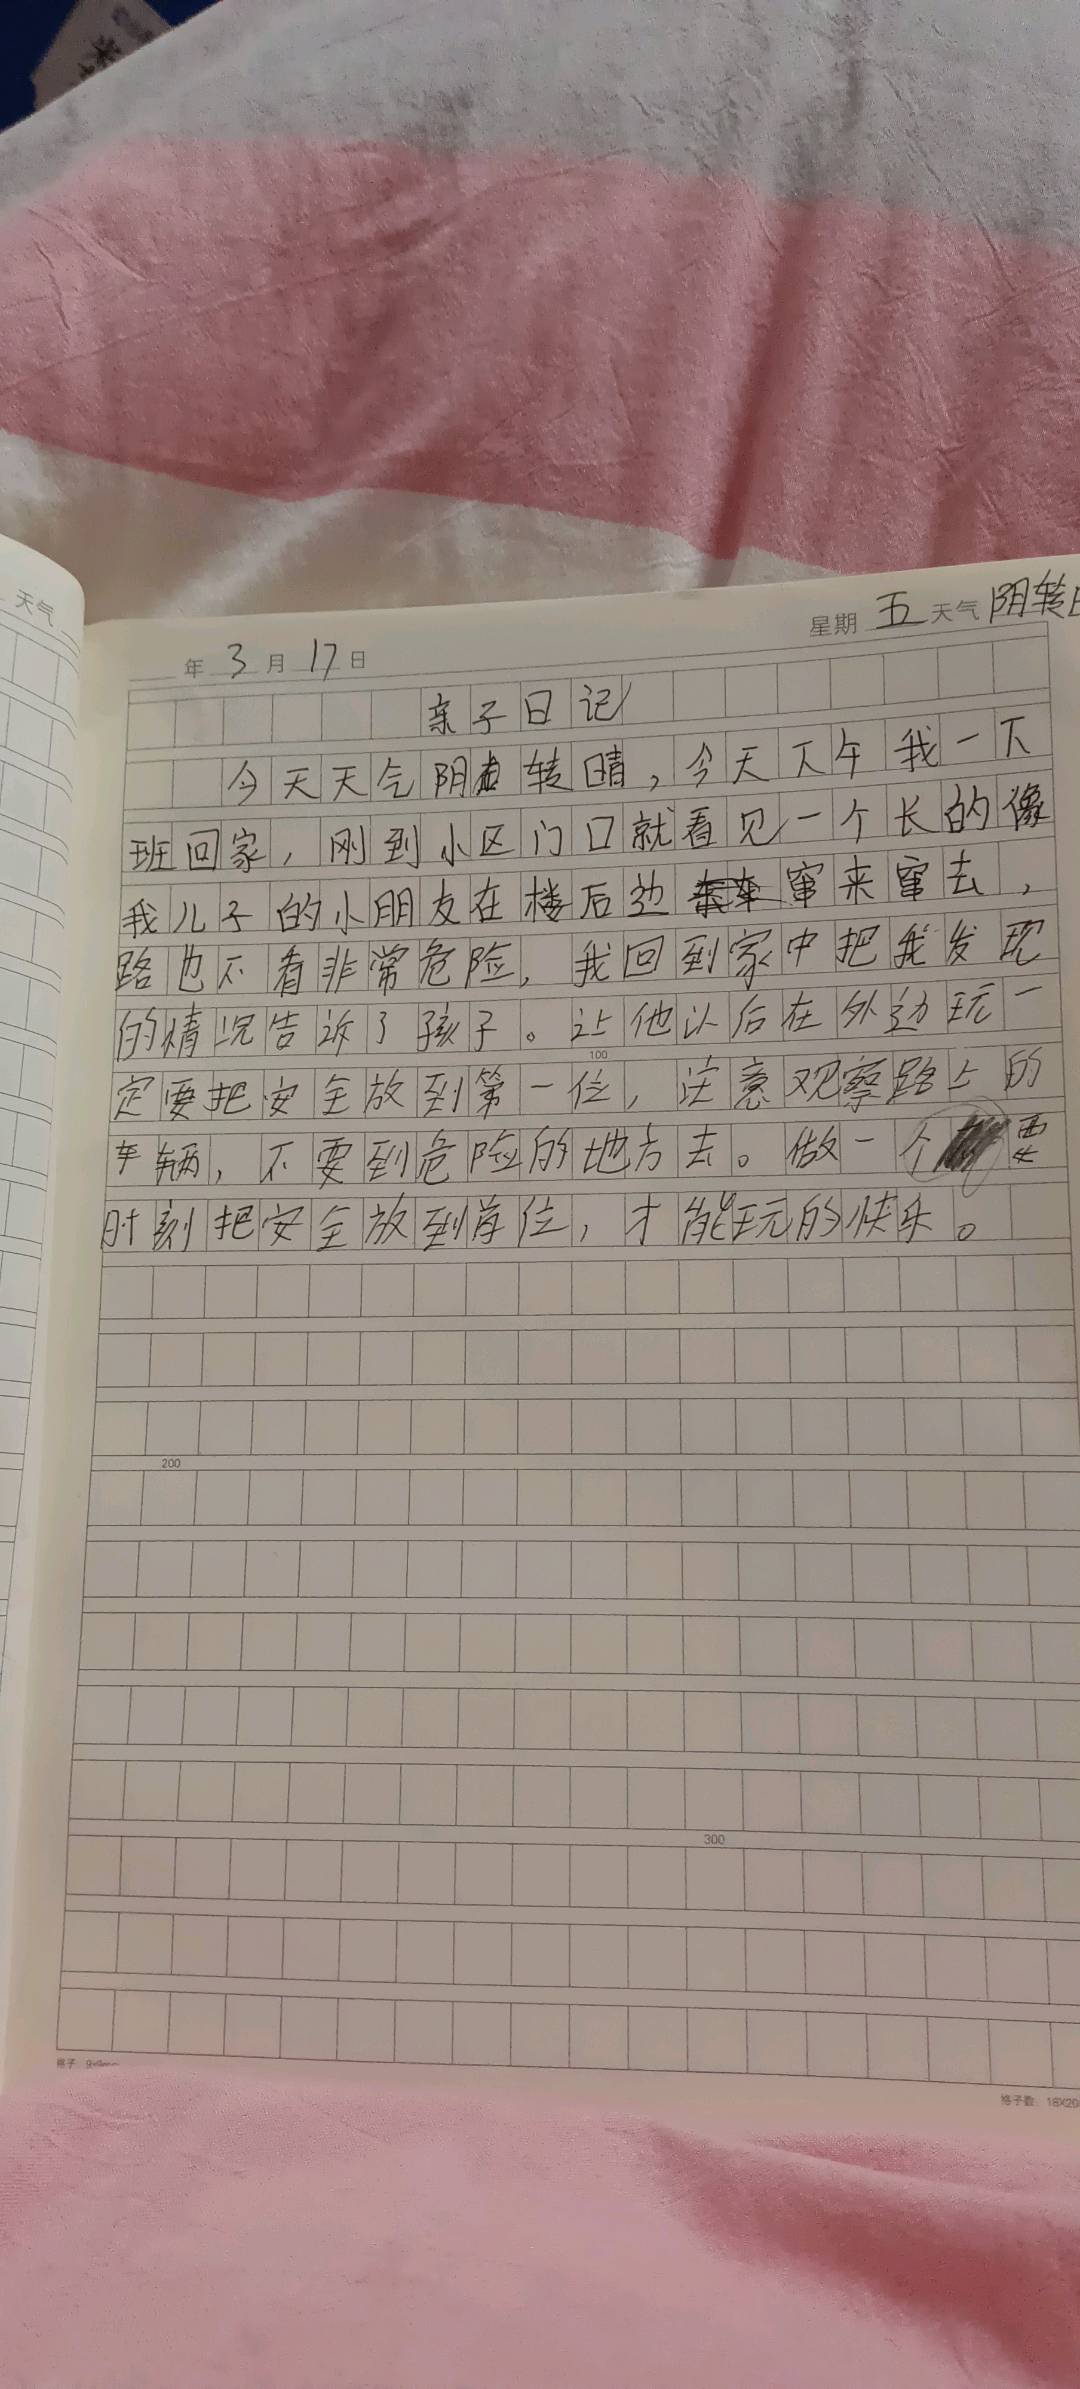 天气
年 3 月 17 日 星期 五 天气 阴转
亲子日记
今天天气阴转晴，今天下午我一下
班回家，刚到小区门口就看见一个长的像
我儿子的小朋友在楼后边窜来窜去，
路也不看非常危险，我回到家中把我发现
的情况告诉了孩子。让他以后在外边玩一
定要把安全放到第一位，注意观察路上的
车辆，不要到危险的地方去。做一个要
时刻把安全放到首位，才能玩的快乐。
100
200
300
格子数：18X20